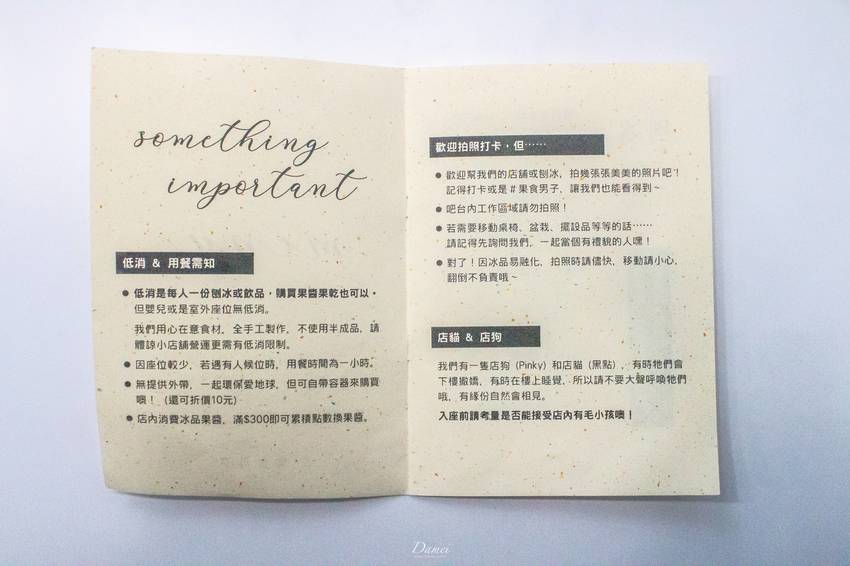 something
important
低消 & 用餐需知
● 低消是每人一份刨冰或飲品，購買果醬果乾也可以。
但嬰兒或是室外座位無低消。
我們用心在意食材，全手工製作，不使用半成品，請
體諒小店舖營運更需有低消限制。
● 因座位較少，若遇有人候位時，用餐時間為一小時。
● 無提供外帶，一起環保愛地球，但可自帶容器來購買
噢！（還可折價10元）
● 店內消費冰品果醬，滿$300即可累積點數換果醬。
歡迎拍照打卡，但……
● 歡迎幫我們的店舖或刨冰，拍幾張張美美的照片吧！
記得打卡或是#果食男子，讓我們也能看得到~
● 吧台內工作區域請勿拍照！
● 若需要移動桌椅、盆栽、擺設品等等的話……
請記得先詢問我們，一起當個有禮貌的人嘿！
● 對了！因冰品易融化，拍照時請儘快，移動請小心，
翻倒不負責哦~
店貓 & 店狗
我們有一隻店狗 (Pinky) 和店貓 (黑點)，有時牠們會
下樓撒嬌，有時在樓上睡覺，所以請不要大聲呼喚牠們
哦，有緣份自然會相見。
入座前請考量是否能接受店內有毛小孩噢！
Damei